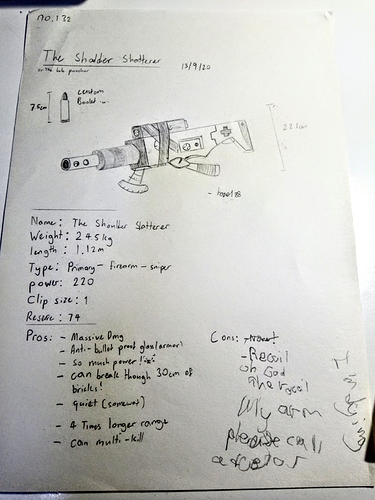 no.132
The Sholder Shatterer
or the hole puncher
13/9/20
7.5cm
custom
Boolet
22.1cm
Name: The Shoulder Slatterer
Weight: 24.5kg
length: 1.12m
Type: Primary - firearm - sniper
power: 220
Clip size: 1
Reserve: 74
Pros: - Massive Dmg
- Anti-bullet proof glass/armor!
- so much power!
- can break though 30cm of
bricks!
- quiet (somewat)
- 4 Times longer range
- can multi-kill
Cons:
- Recoil
oh God
the recoil
My arm
please call
a doctor
I'm dying